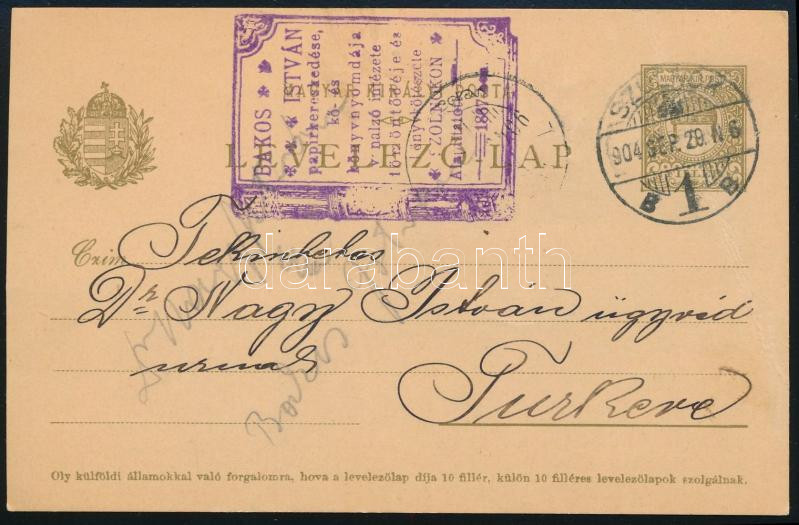 MAGYAR KIRÁLYI POSTA
LEVELEZŐ-LAP
BAKOS ISTVÁN
papirkereskedése,
kő- és
könyvnyomdája
vonalzó intézete
könyvkötészete
SZOLNOKON
Alapittatott
1867-ben.
MAGYAR KIR. POSTA
SZOLNOK
904 SEP 29. N 6
B 1 B
Czim:
Tekintetes
Dr Nagy István ügyvéd
urnak
Turkeve
Bakos
darabanth
Oly külföldi államokkal való forgalomra, hova a levelezőlap díja 10 fillér, külön 10 filléres levelezőlapok szolgálnak.